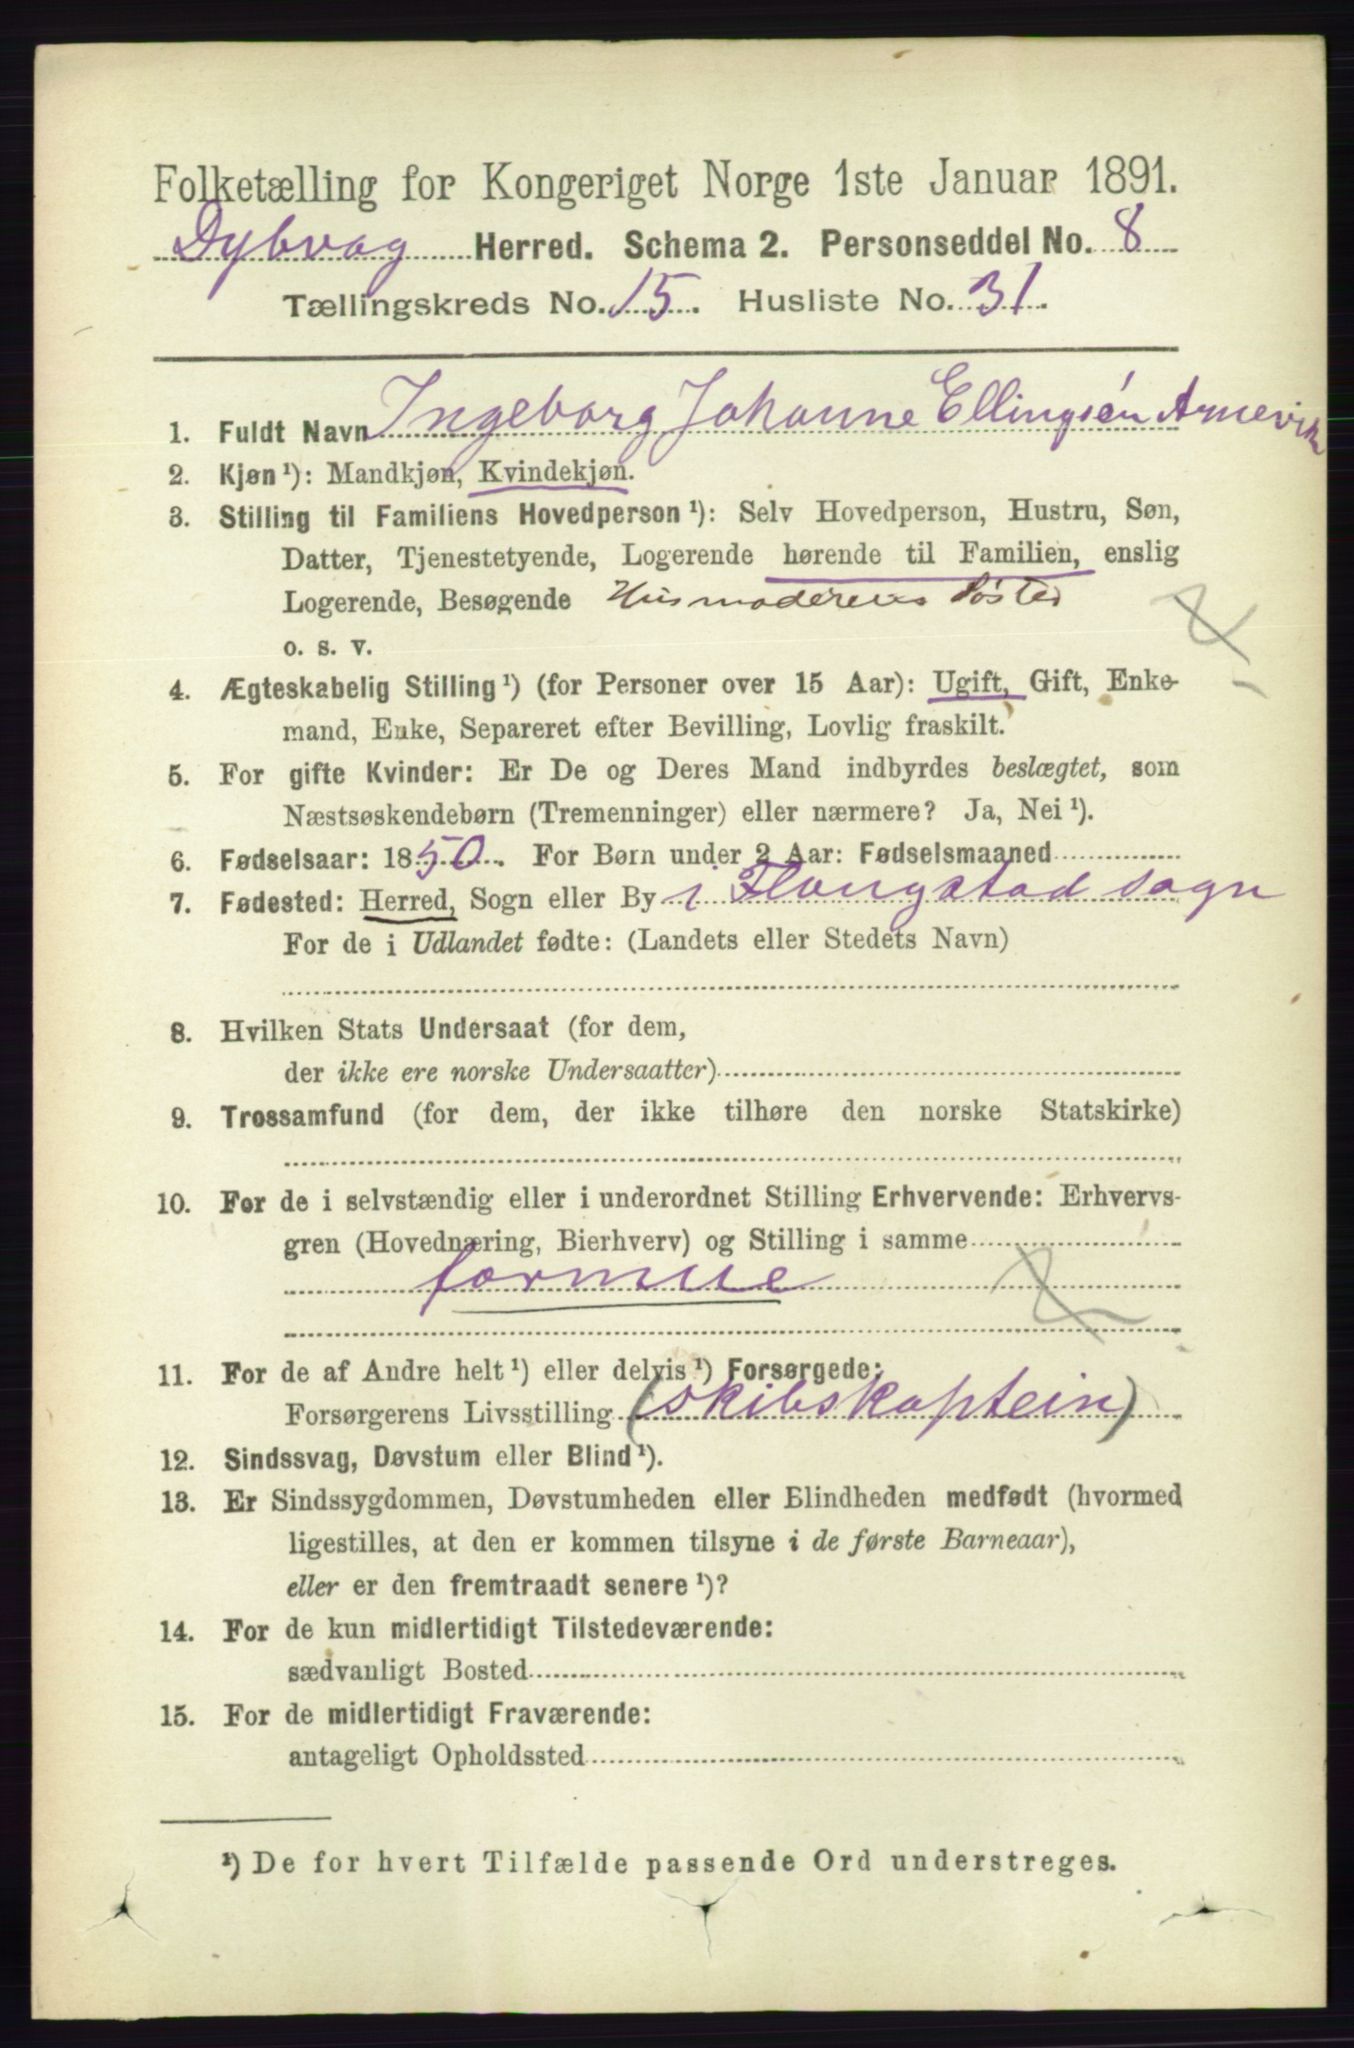 Folketælling for Kongeriget Norge 1ste Januar 1891.
Dybvag Herred. Schema 2. Personseddel No. 8
Tællingskreds No. 15. Husliste No. 31.
1. Fuldt Navn Ingeborg Johanne Ellingsen Arnevik
2. Kjøn¹): Mandkjøn, Kvindekjøn.
3. Stilling til Familiens Hovedperson¹): Selv Hovedperson, Hustru, Søn,
Datter, Tjenestetyende, Logerende hørende til Familien, enslig
Logerende, Besøgende Husmoderens Søster
o. s. v.
4. Ægteskabelig Stilling¹) (for Personer over 15 Aar): Ugift, Gift, Enke-
mand, Enke, Separeret efter Bevilling, Lovlig fraskilt.
5. For gifte Kvinder: Er De og Deres Mand indbyrdes beslægtet, som
Næstsøskendebørn (Tremenninger) eller nærmere? Ja, Nei¹).
6. Fødselsaar: 1850. For Børn under 2 Aar: Fødselsmaaned
7. Fødested: Herred, Sogn eller By i Flougstad sogn
For de i Udlandet fødte: (Landets eller Stedets Navn)
8. Hvilken Stats Undersaat (for dem,
der ikke ere norske Undersaatter)
9. Trossamfund (for dem, der ikke tilhøre den norske Statskirke)
10. For de i selvstændig eller i underordnet Stilling Erhvervende: Erhvervs-
gren (Hovednæring, Bierhverv) og Stilling i samme
formue
11. For de af Andre helt¹) eller delvis¹) Forsørgede:
Forsørgerens Livsstilling (skibskaptein)
12. Sindssvag, Døvstum eller Blind¹).
13. Er Sindssygdommen, Døvstumheden eller Blindheden medfødt (hvormed
ligestilles, at den er kommen tilsyne i de første Barneaar),
eller er den fremtraadt senere¹)?
14. For de kun midlertidigt Tilstedeværende:
sædvanligt Bosted
15. For de midlertidigt Fraværende:
antageligt Opholdssted
¹) De for hvert Tilfælde passende Ord understreges.